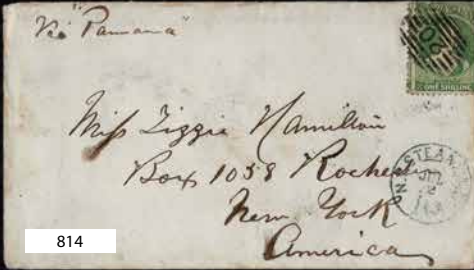 Via "Panama"
ONE SHILLING
Miss Lizzie Hamilton
Box 1058 Rochester
New York
America
814